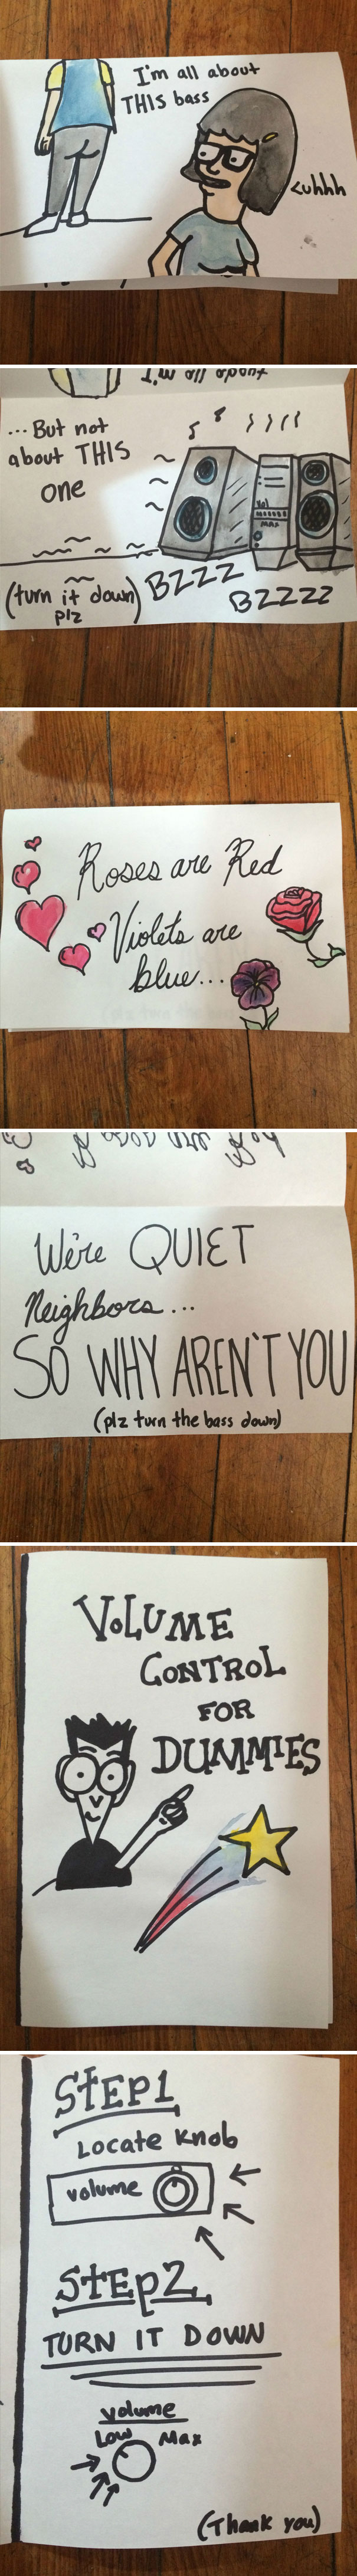 I'm all about
THIS bass
<uhhh
I'm all about
... But not
about THIS
one
Vol
MAX
(turn it down)
plz
BZZZ
BZZZZ
Roses are Red
Violets are
blue...
We're QUIET
Neighbors...
SO WHY AREN'T YOU
(plz turn the bass down)
VOLUME
CONTROL
FOR
DUMMIES
STEP 1
Locate Knob
volume
Step 2
TURN IT DOWN
volume
Low Max
(Thank you)